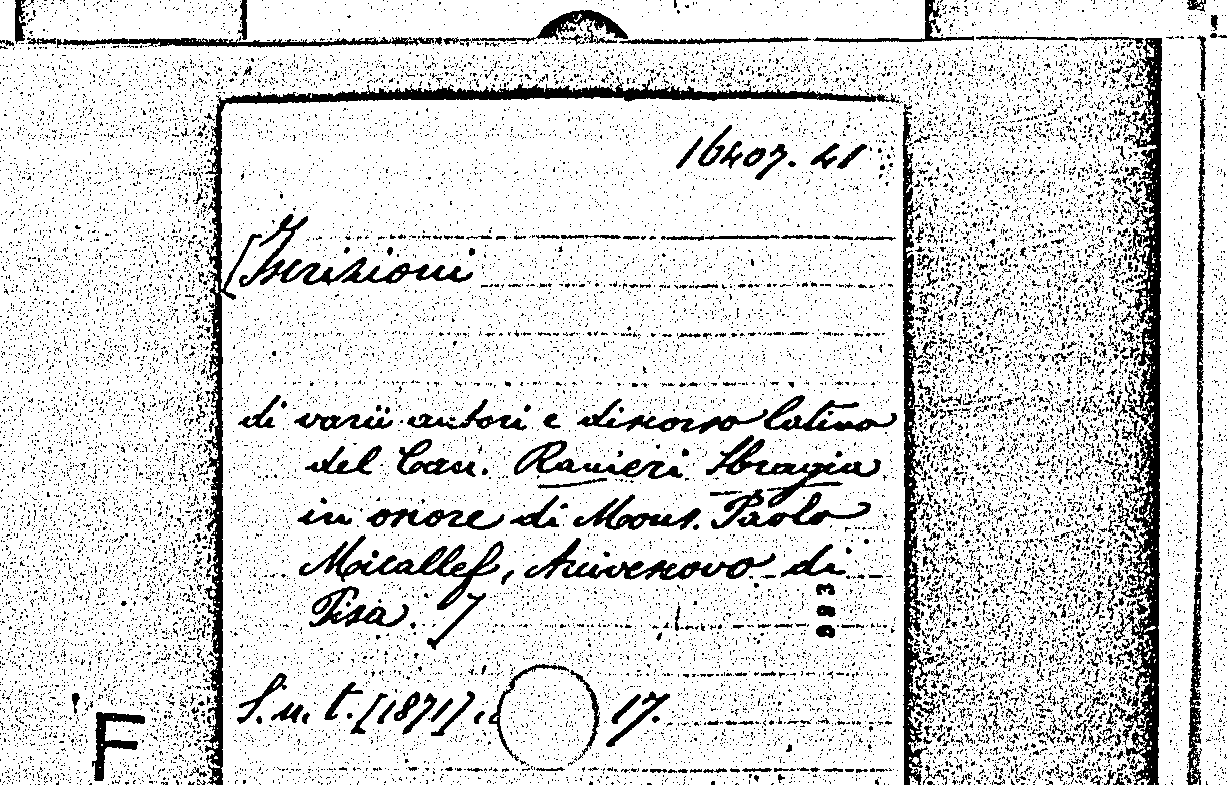 16407. 41
[Iscrizioni
di varii autori e discorso latino
del Can. Ranieri Sbragia
in onore di Mons. Paolo
Micallef, Arcivescovo di
Pisa.]
983
S. n. t. [1871], 17.
F